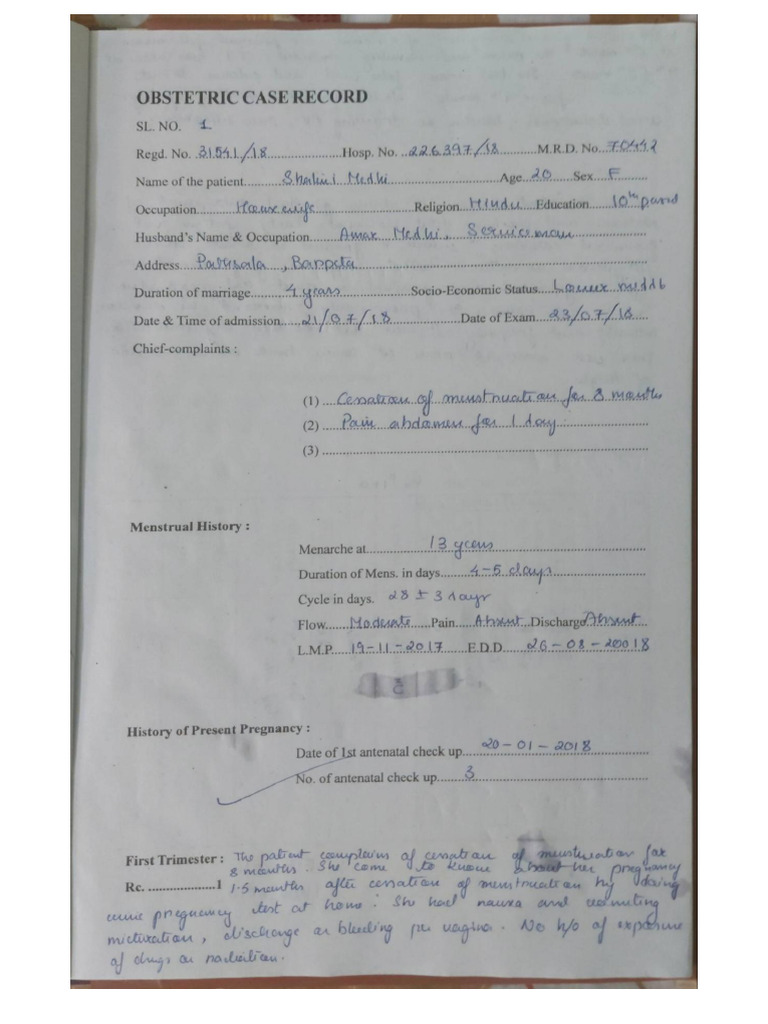 OBSTETRIC CASE RECORD
SL. NO. 1
Regd. No. 31541/18 Hosp. No. 226397/18 M.R.D. No. 70442
Name of the patient Medhi Age 20 Sex F
Occupation Housewife Religion Hindu Education 10th passed
Husband's Name & Occupation Amar Medhi, Serviceman
Address , Barpeta
Duration of marriage 4 years Socio-Economic Status Lower middle
Date & Time of admission 21/07/18 Date of Exam 23/07/18
Chief-complaints :
(1) Cessation of menstruation for 8 months
(2) Pain abdomen for 1 day
(3)
Menstrual History :
Menarche at 13 years
Duration of Mens. in days 4-5 days
Cycle in days. 28 ± 3 days
Flow Moderate Pain Absent Discharge Absent
L.M.P. 19-11-2017 E.D.D. 26-08-20018
History of Present Pregnancy :
Date of 1st antenatal check up 20-01-2018
No. of antenatal check up 3
First Trimester : The patient complains of cessation of menstruation for
8 months. She come to know about her pregnancy
Rc. 1 1.5 months after cessation of menstruation by doing
urine pregnancy test at home. She had nausea and vomiting
micturation, discharge or bleeding per vagina. No h/o of exposure
of drugs or radiation.